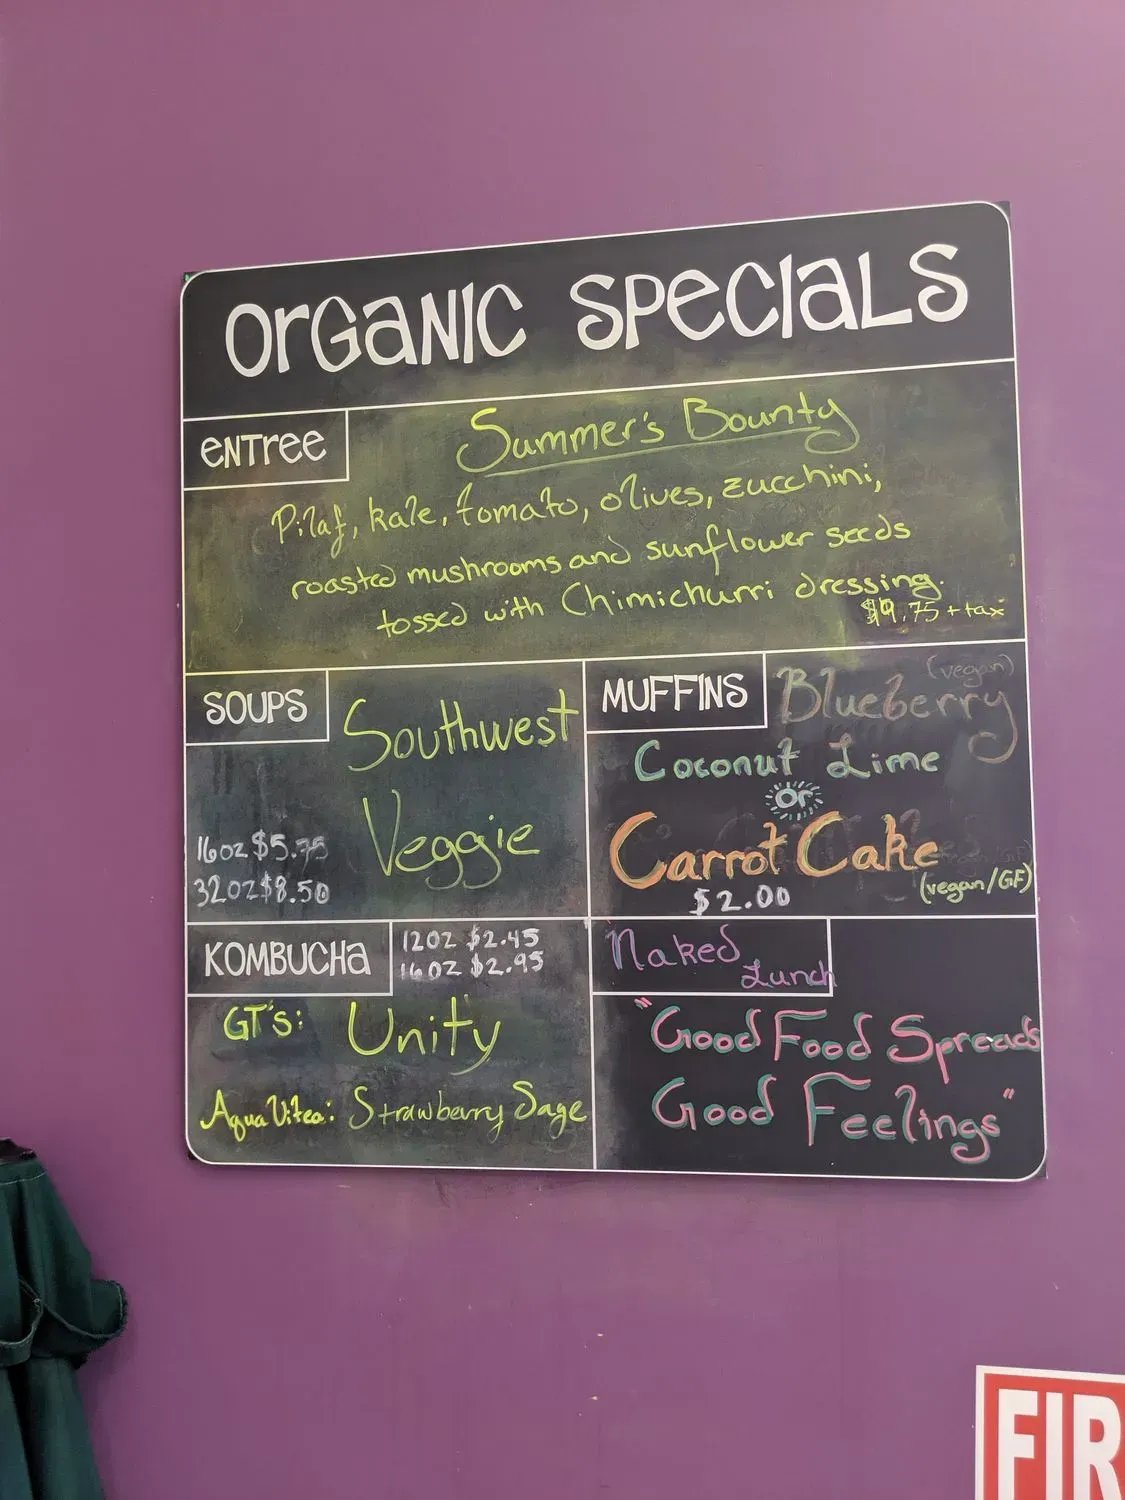 ORGANIC SPECIALS
ENTREE
Summer's Bounty
Pilaf, kale, tomato, olives, zucchini,
roasted mushrooms and sunflower seeds
tossed with Chimichurri dressing.
$9.75 + tax
SOUPS
Southwest
Veggie
16oz $5.75
32oz $8.50
MUFFINS
(vegan)
Blueberry
Coconut Lime
or
Carrot Cake
(vegan/GF)
$2.00
KOMBUCHA
12OZ $2.45
16OZ $2.95
GT'S: Unity
Aqua Vitea: Strawberry Sage
Naked
Lunch
"Good Food Spreads
Good Feelings"
FIR